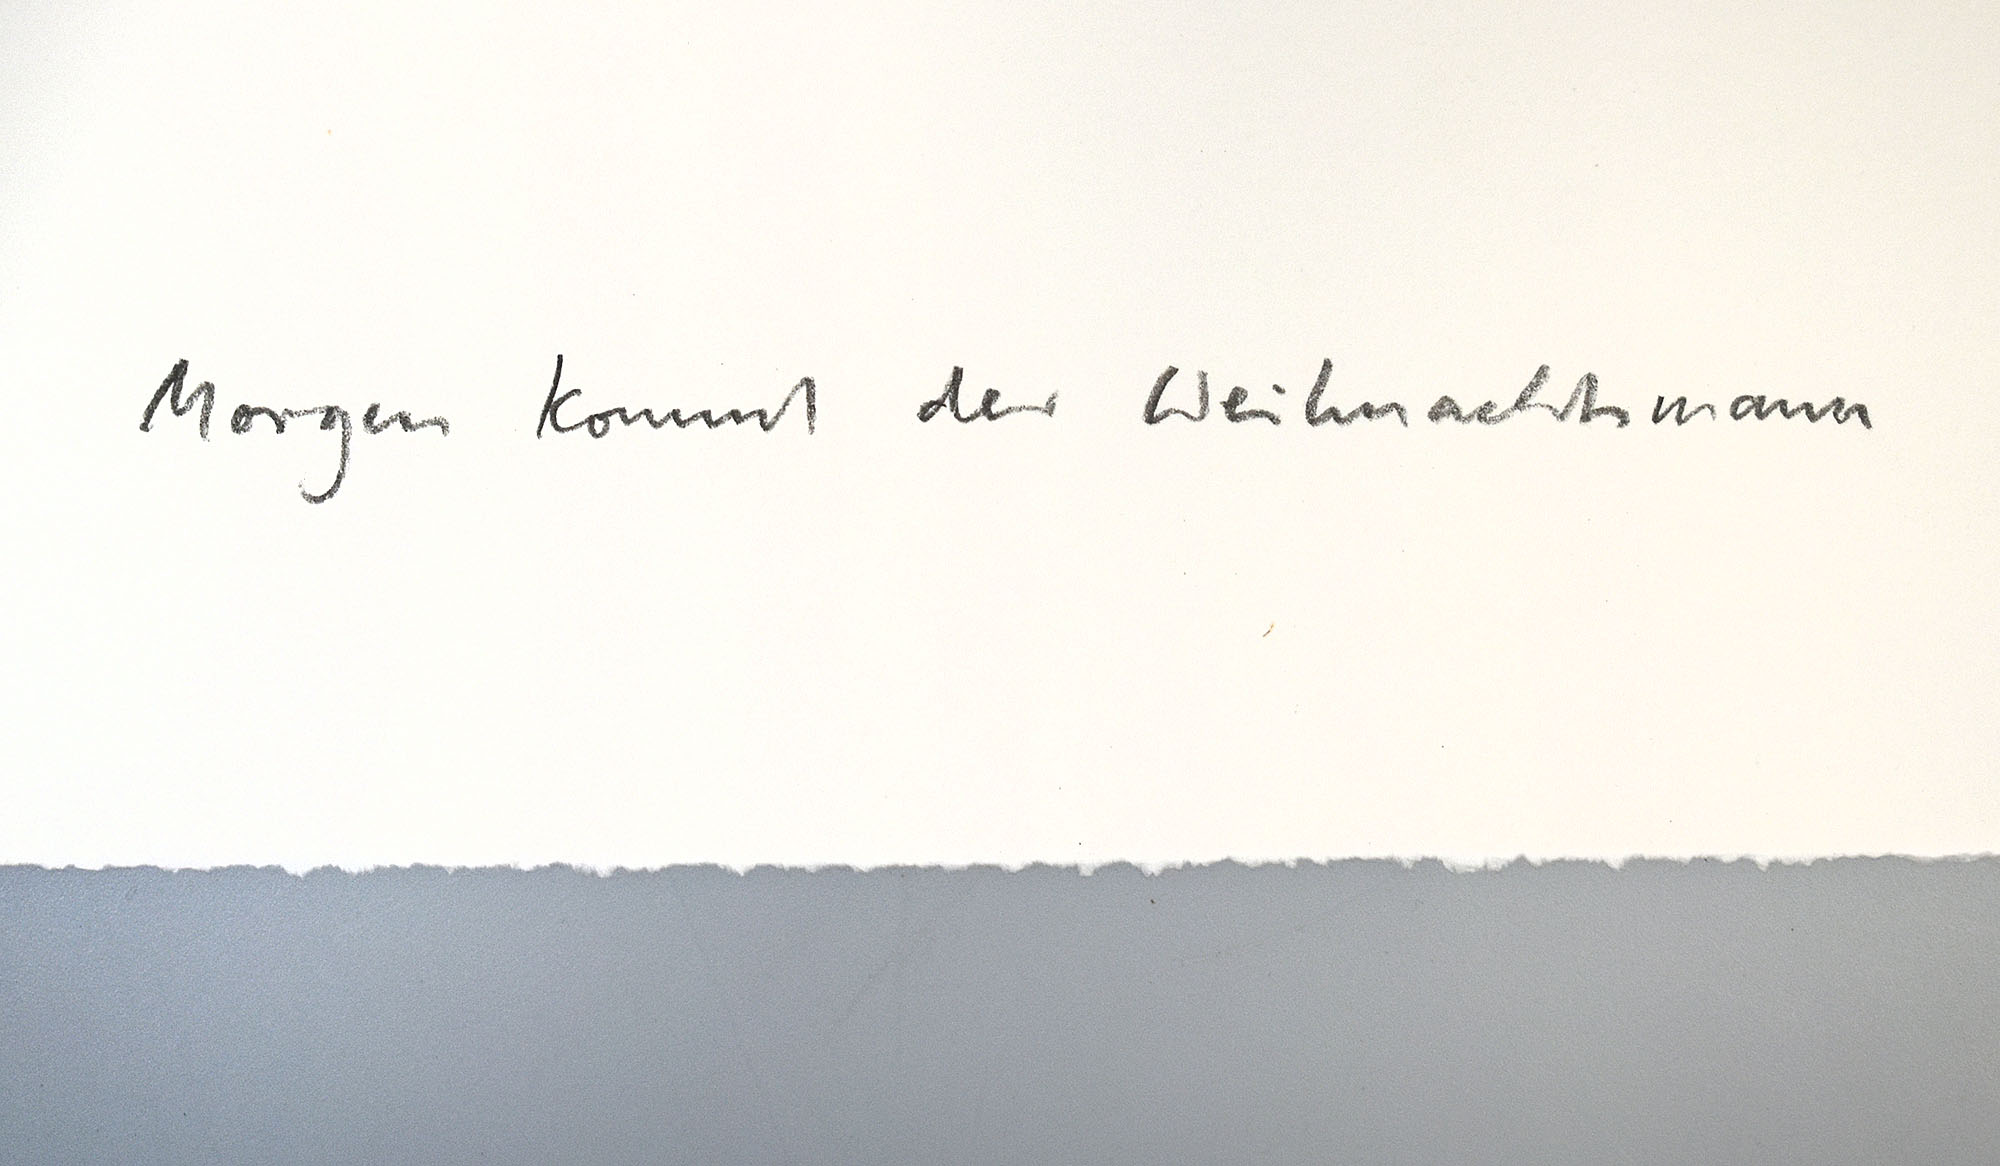 Morgen kommt der Weihnachtsmann